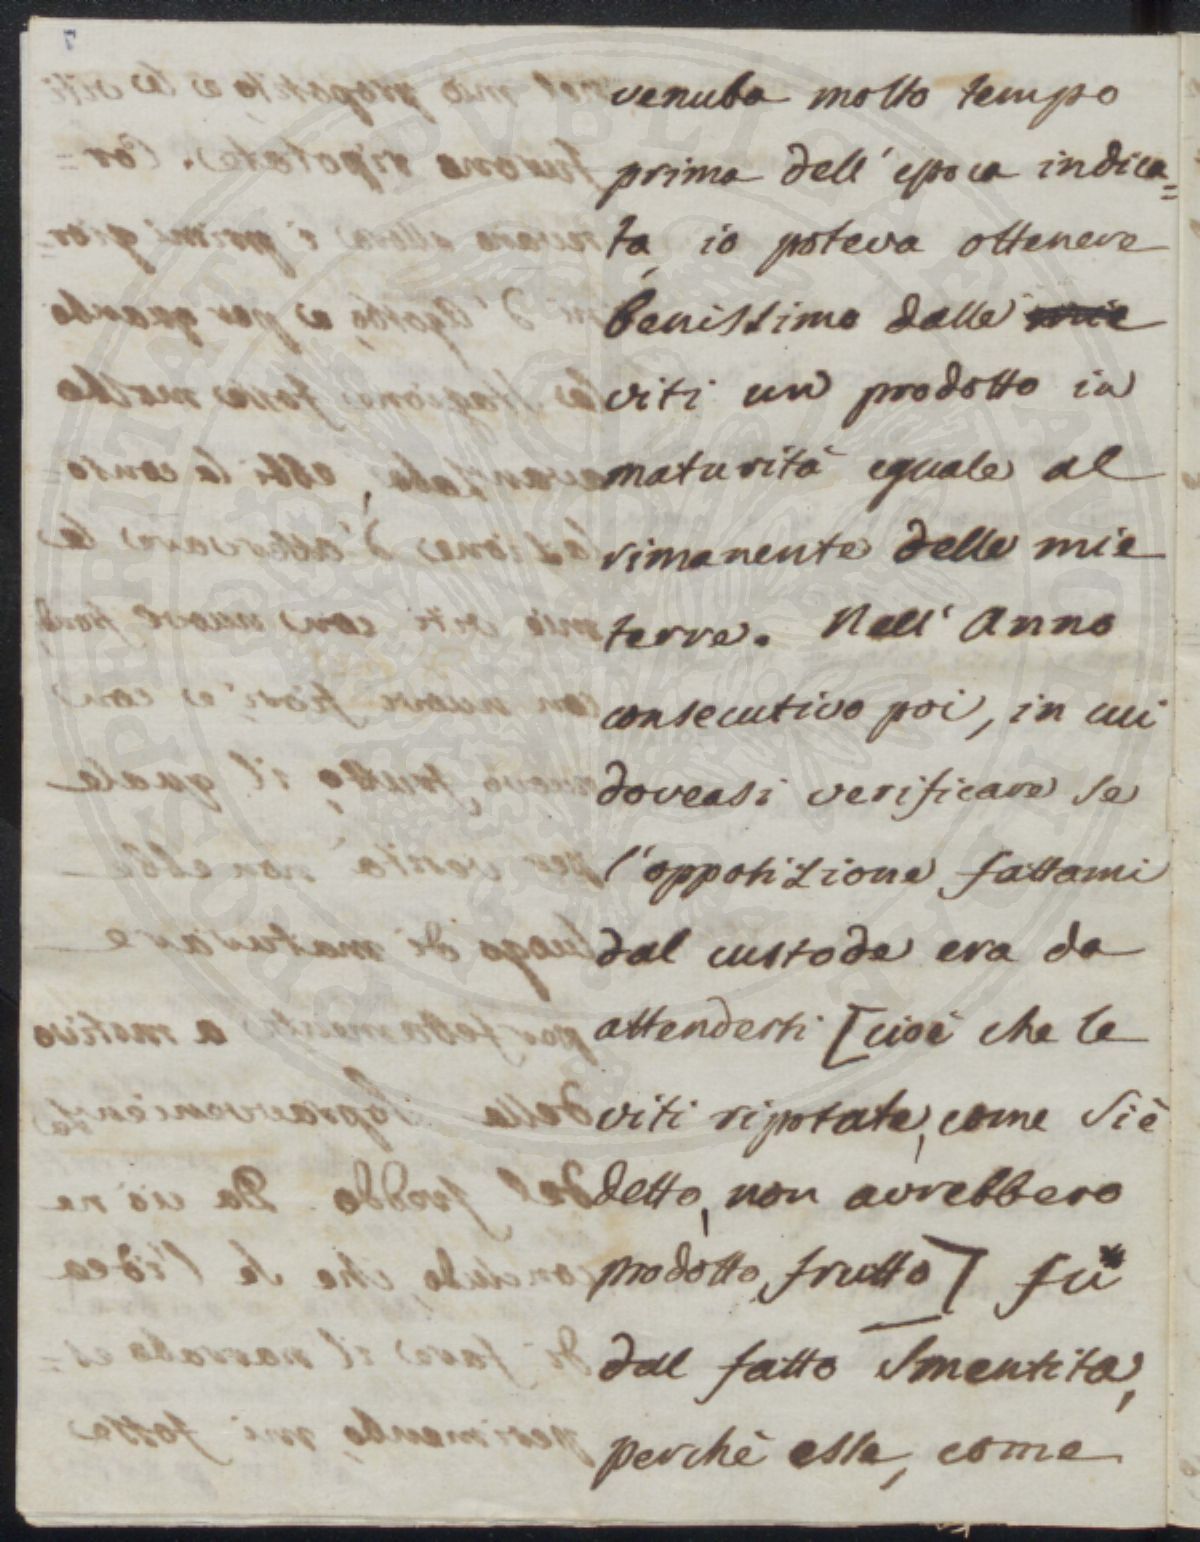 venuta molto tempo
prima dell' epoca indica=
ta io poteva ottenere
benissimo dalle mie
viti un prodotto in
maturità eguale al
rimanente delle mie
terre. Nell' Anno
consecutivo poi, in cui
doveasi verificare se
l'opposizione fattami
dal custode era da
attendersi [cioè che le
viti ripotate, come si è
detto, non avrebbero
prodotto frutto] fù
dal fatto smentita,
perchè esse, come